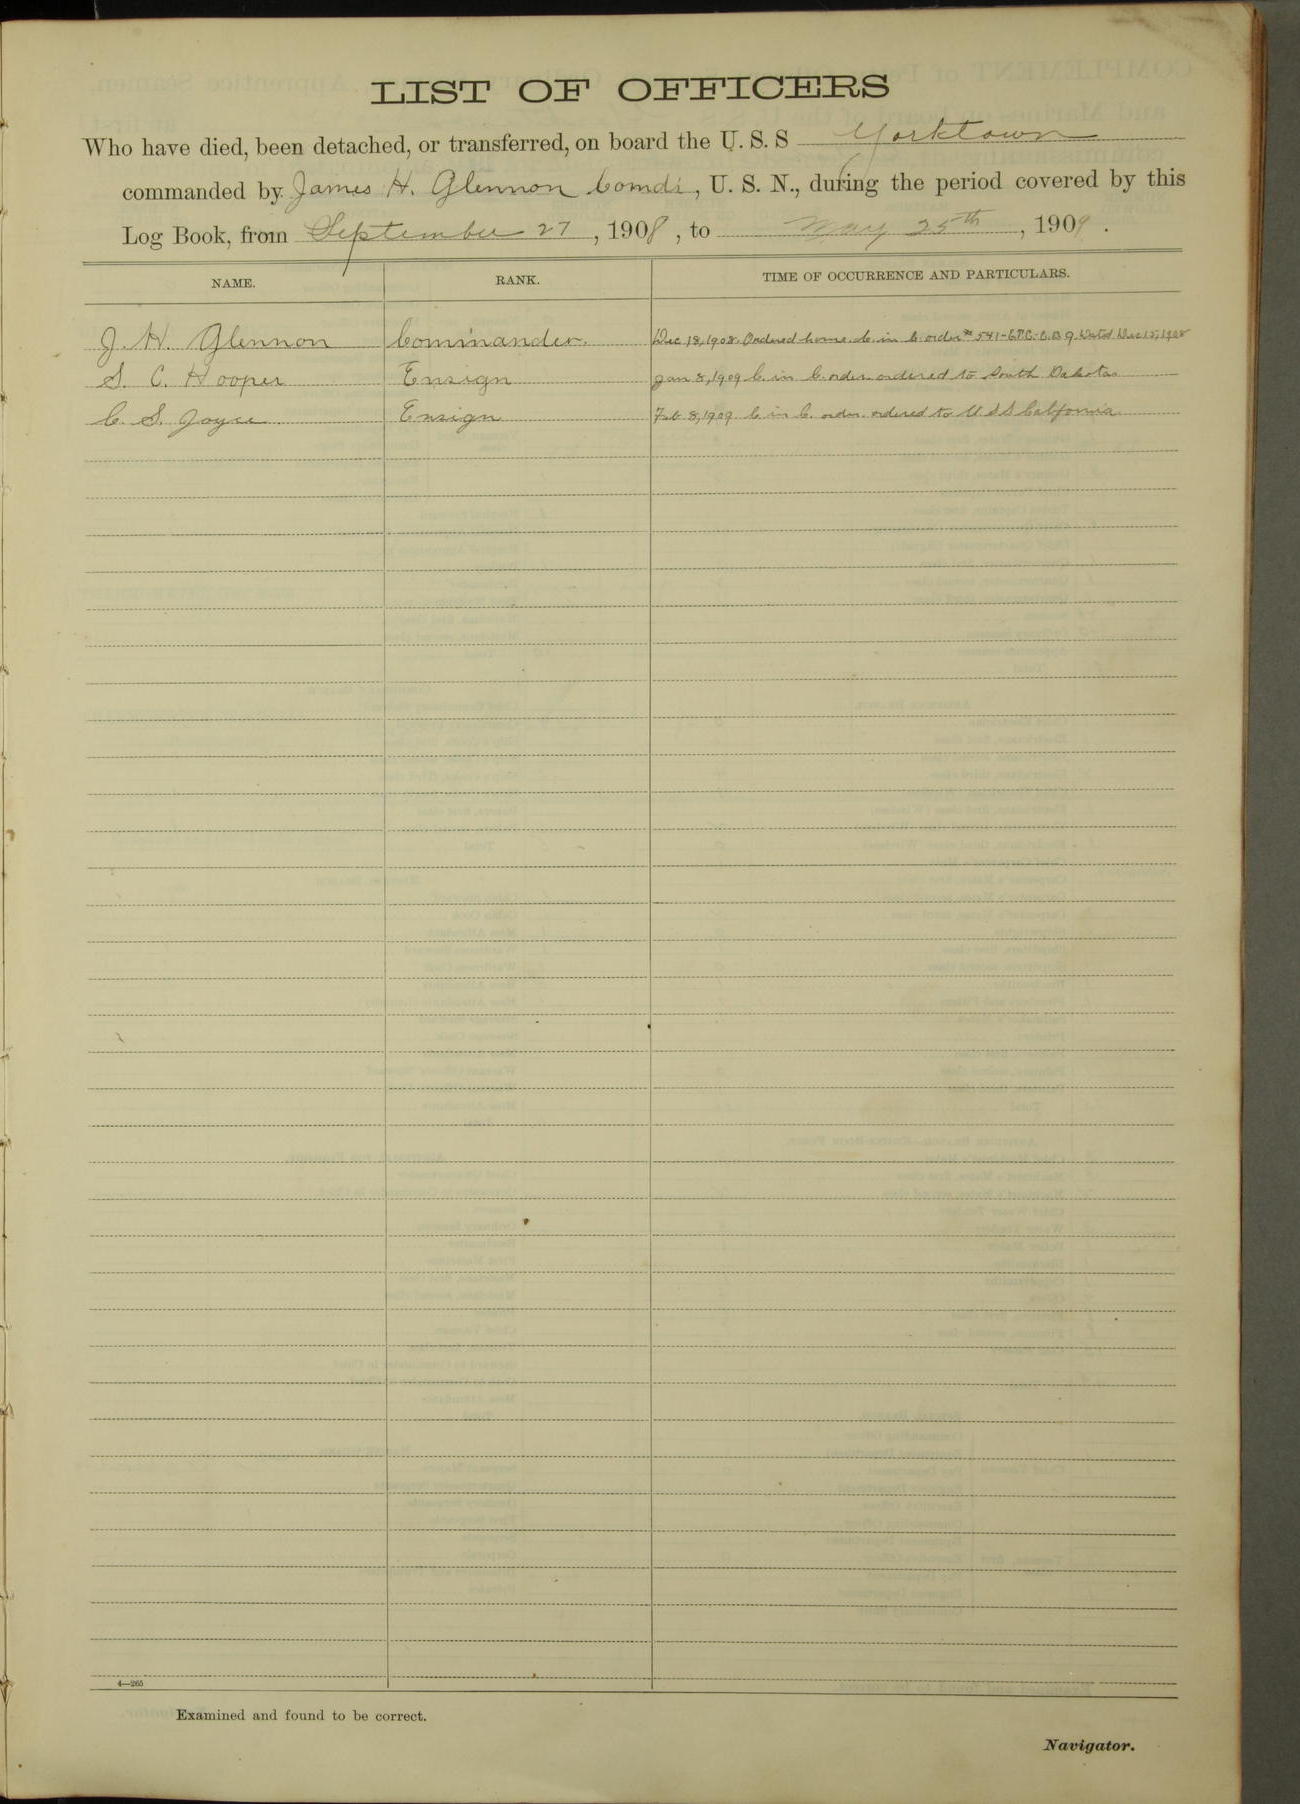 LIST OF OFFICERS
Who have died, been detached, or transferred, on board the U. S. S Yorktown
commanded by James H. Glennon Comdr, U. S. N., during the period covered by this
Log Book, from September 27, 1908, to May 25th, 1909.
NAME. RANK. TIME OF OCCURRENCE AND PARTICULARS.
J. H. Glennon Commander. Dec 18, 1908. Ordered home. C. in C. order # 541- Dated Dec 15, 1908
S. C. Hooper Ensign Jan 8, 1909 C. in C. order ordered to South Dakota
C. S. Joyce Ensign Feb 8, 1909. C in C. order. ordered to U S S California
4—265
Examined and found to be correct.
Navigator.